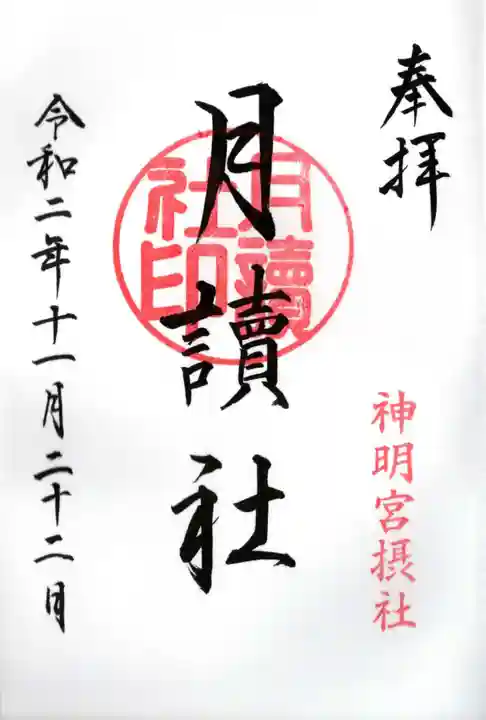 奉拝
神明宮摂社
月讀社
月讀社印
令和二年十一月二十二日